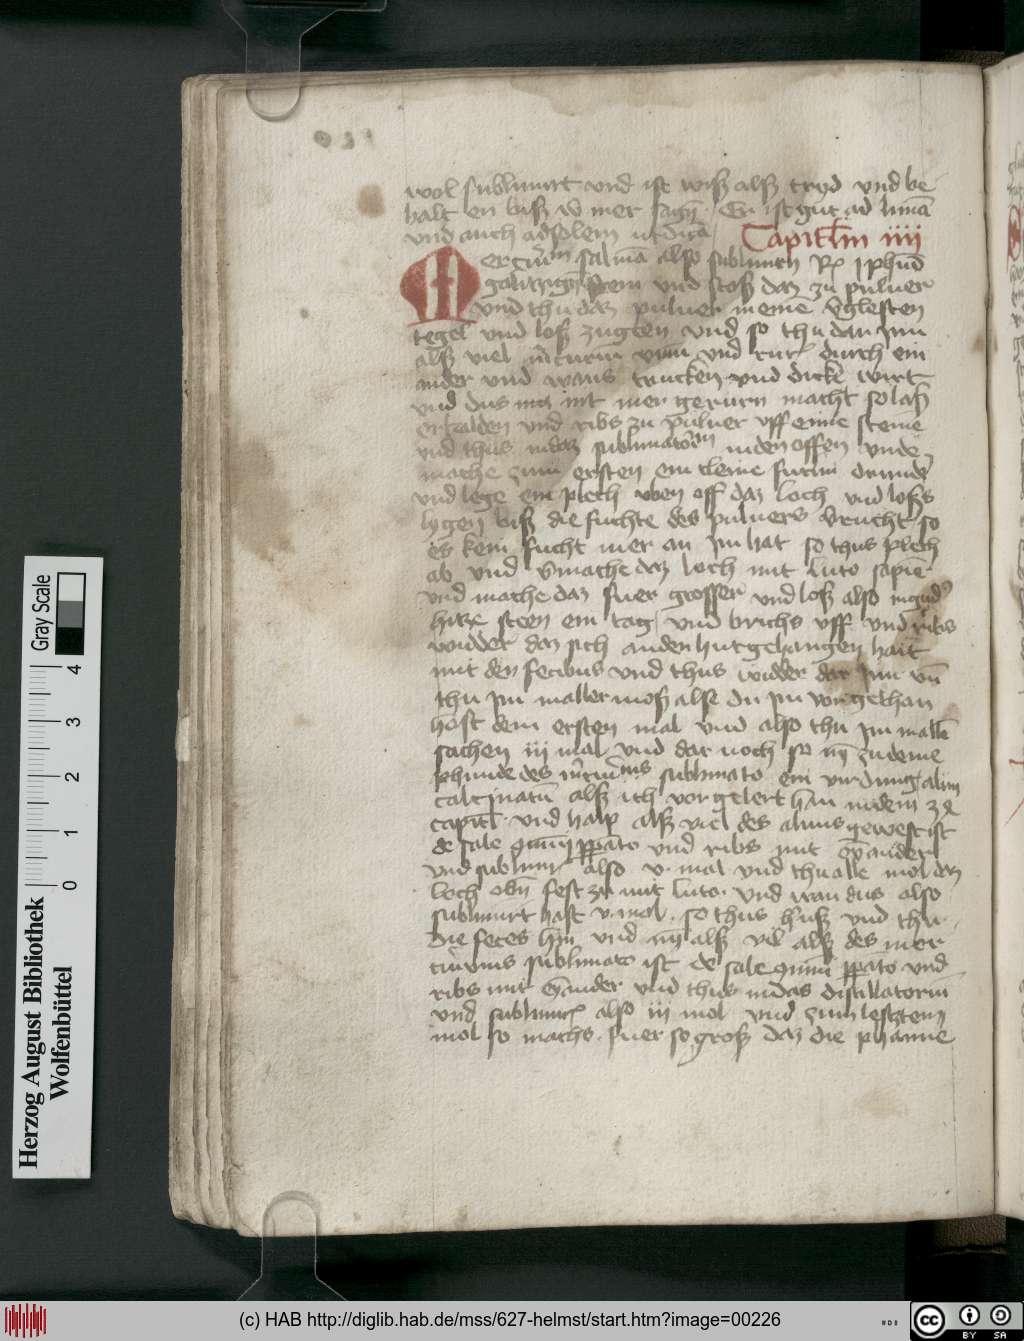 wol sublimirt vnd ist wiß alß cryd vnd be
halt en biß ich mer sagen. Er ist gut ad lunā
vnd auch ad solem
Capitl'm iiii
Mercuriū salmā also sublimirn Rx i phūd
stein vnd stoß daz zu puluer
vnd thu daz puluer in eine v̄glesten
tegel vnd loß zugeen vnd so thu dar Inn
alß viel m̄curiū vnd rur durch ein
ander vnd wans trucken vnd dicke wirt
vnd dus nit mer gerurn macht so laß
erkalden vnd ribs zu puluer vff eime steine
vnd thus in daz sublimatoriū in den offen vnde
mache zum ersten ein cleine furlin drunder
vnd lege ein plech vben off daz loch vnd loßs
lygen biß die fuchte des puluers so
es kein fucht mer an Im hat so thus plech
ab vnd v̄mache daz loch mit luto sapiē
vnd mache daz fuer grosser vnd loß also
hitze steen ein tag vnd brichs vff vnd ribs
widder daz sich an den hut gehangen hait
mit den fecibus vnd thus widder dar Inn vn̄
thu Im maller moß alse du Im vor gethan
host dem ersten mal vnd also thu Im
sachen iii mal vnd dar noch so nȳ zu deme
phunde des m̄curius sublimato ein virdung alun
calcinatū alß ich vor gelert han in dem
capitl' vnd halp alß viel des aluns gewest ist
de sale ꝓpato vnd ribs mit eȳander
vnd sublimir also v mal vnd thu alle mol daz
loch obn̄ fest zu mit luto vnd wan dus also
sublimirt hast v mol so thus vnd thu
die feces hin vnd nȳ alß vil alß des mer
curius sublimato ist de sale ꝓpato vnd
ribs mit eȳander vnd thus in das distillatoriū
vnd sublimir also iii mol vnd zum lestztem
mol so machs fuer so groß daz die phanne
Herzog August Bibliothek
Wolfenbüttel
Gray Scale
0 1 2 3 4
(c) HAB http://diglib.hab.de/mss/627-helmst/start.htm?image=00226
cc BY SA